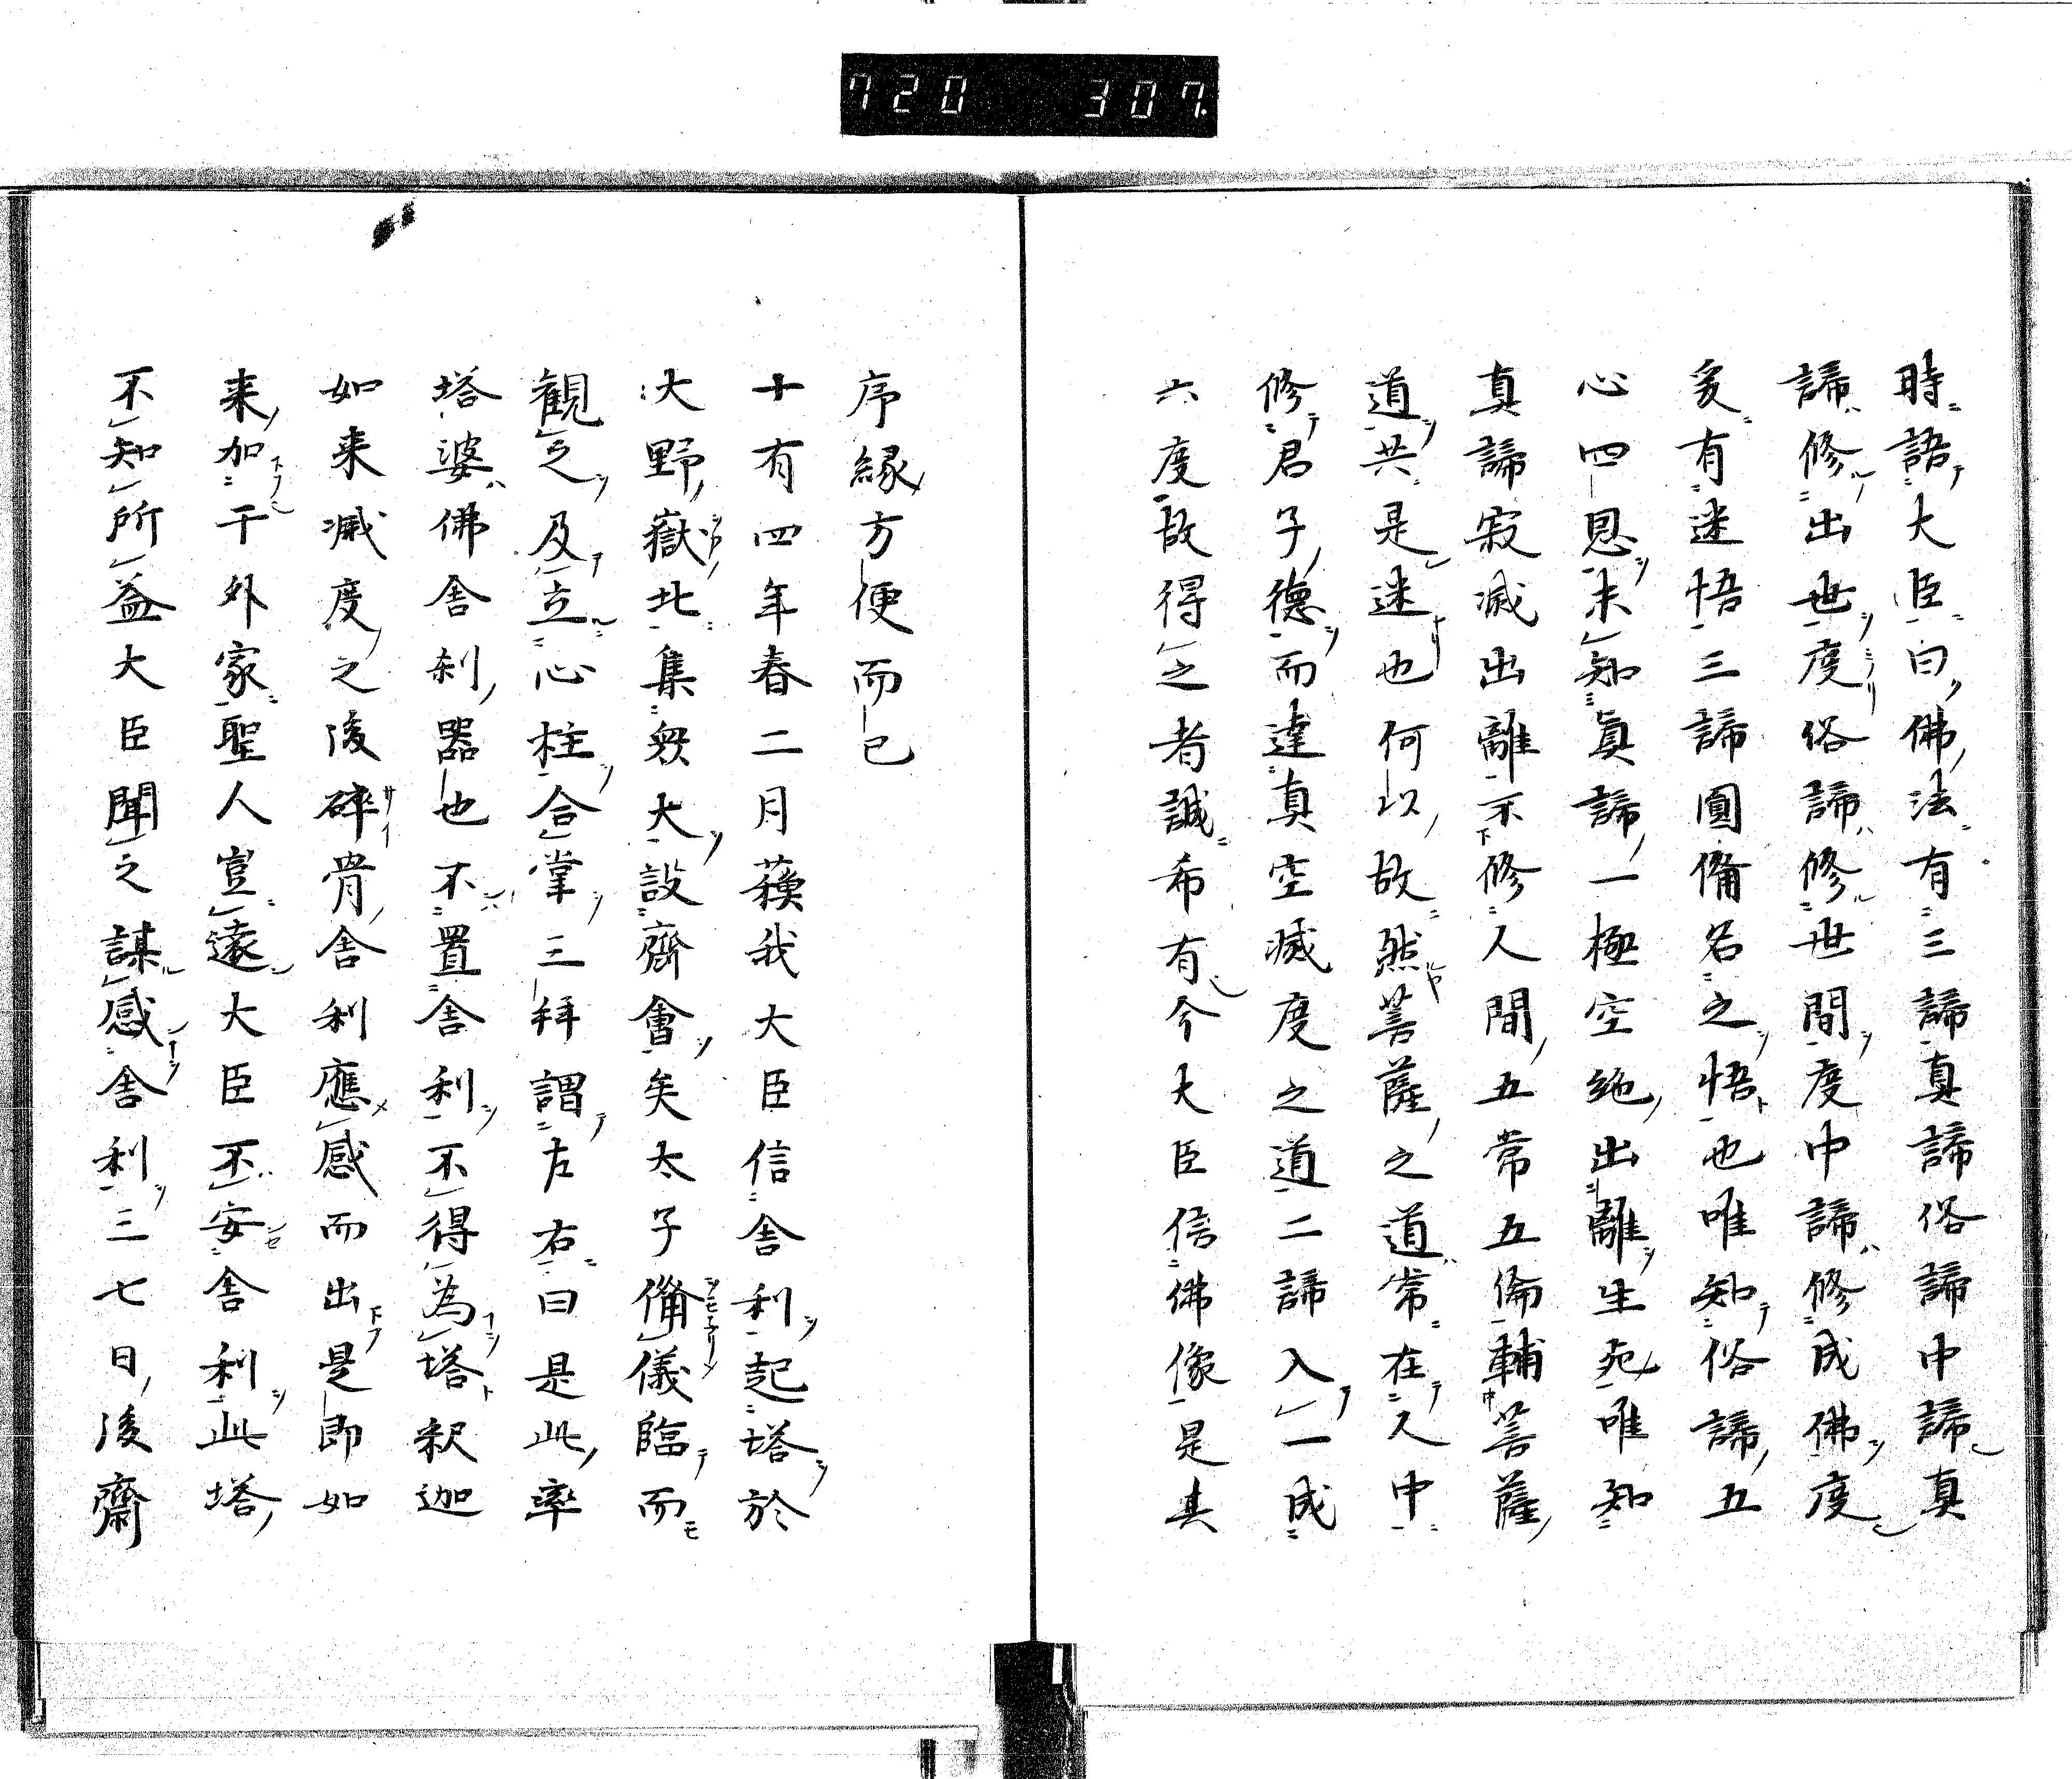 720 307.
時語大臣曰佛法有三諦真諦俗諦中諦真
諦修出世度俗諦修世間度中諦修成佛度
爰有迷悟三諦圓備名之悟也唯知俗諦五
心四恩未知真諦一極空絶出離生死唯知
真諦寂滅出離不修人間五常五倫輔菩薩
道共是迷也何以故然菩薩之道常在人中
修君子德而達真空滅度之道二諦入一成
六度故得之者誠希有今大臣信佛像是其
序縁方便而已
十有四年春二月蘓我大臣信舎利起塔於
大野嶽北集衆大設齊會矣太子備儀臨而
觀之及立心柱合掌三拜謂左右曰是此率
塔婆佛舎利器也不置舎利不得為塔釈迦
如来滅度之後碎骨舎利應感而出是即如
来加干外家聖人豈遠大臣不安舎利此塔
不知所益大臣聞之謀感舎利三七日後齋